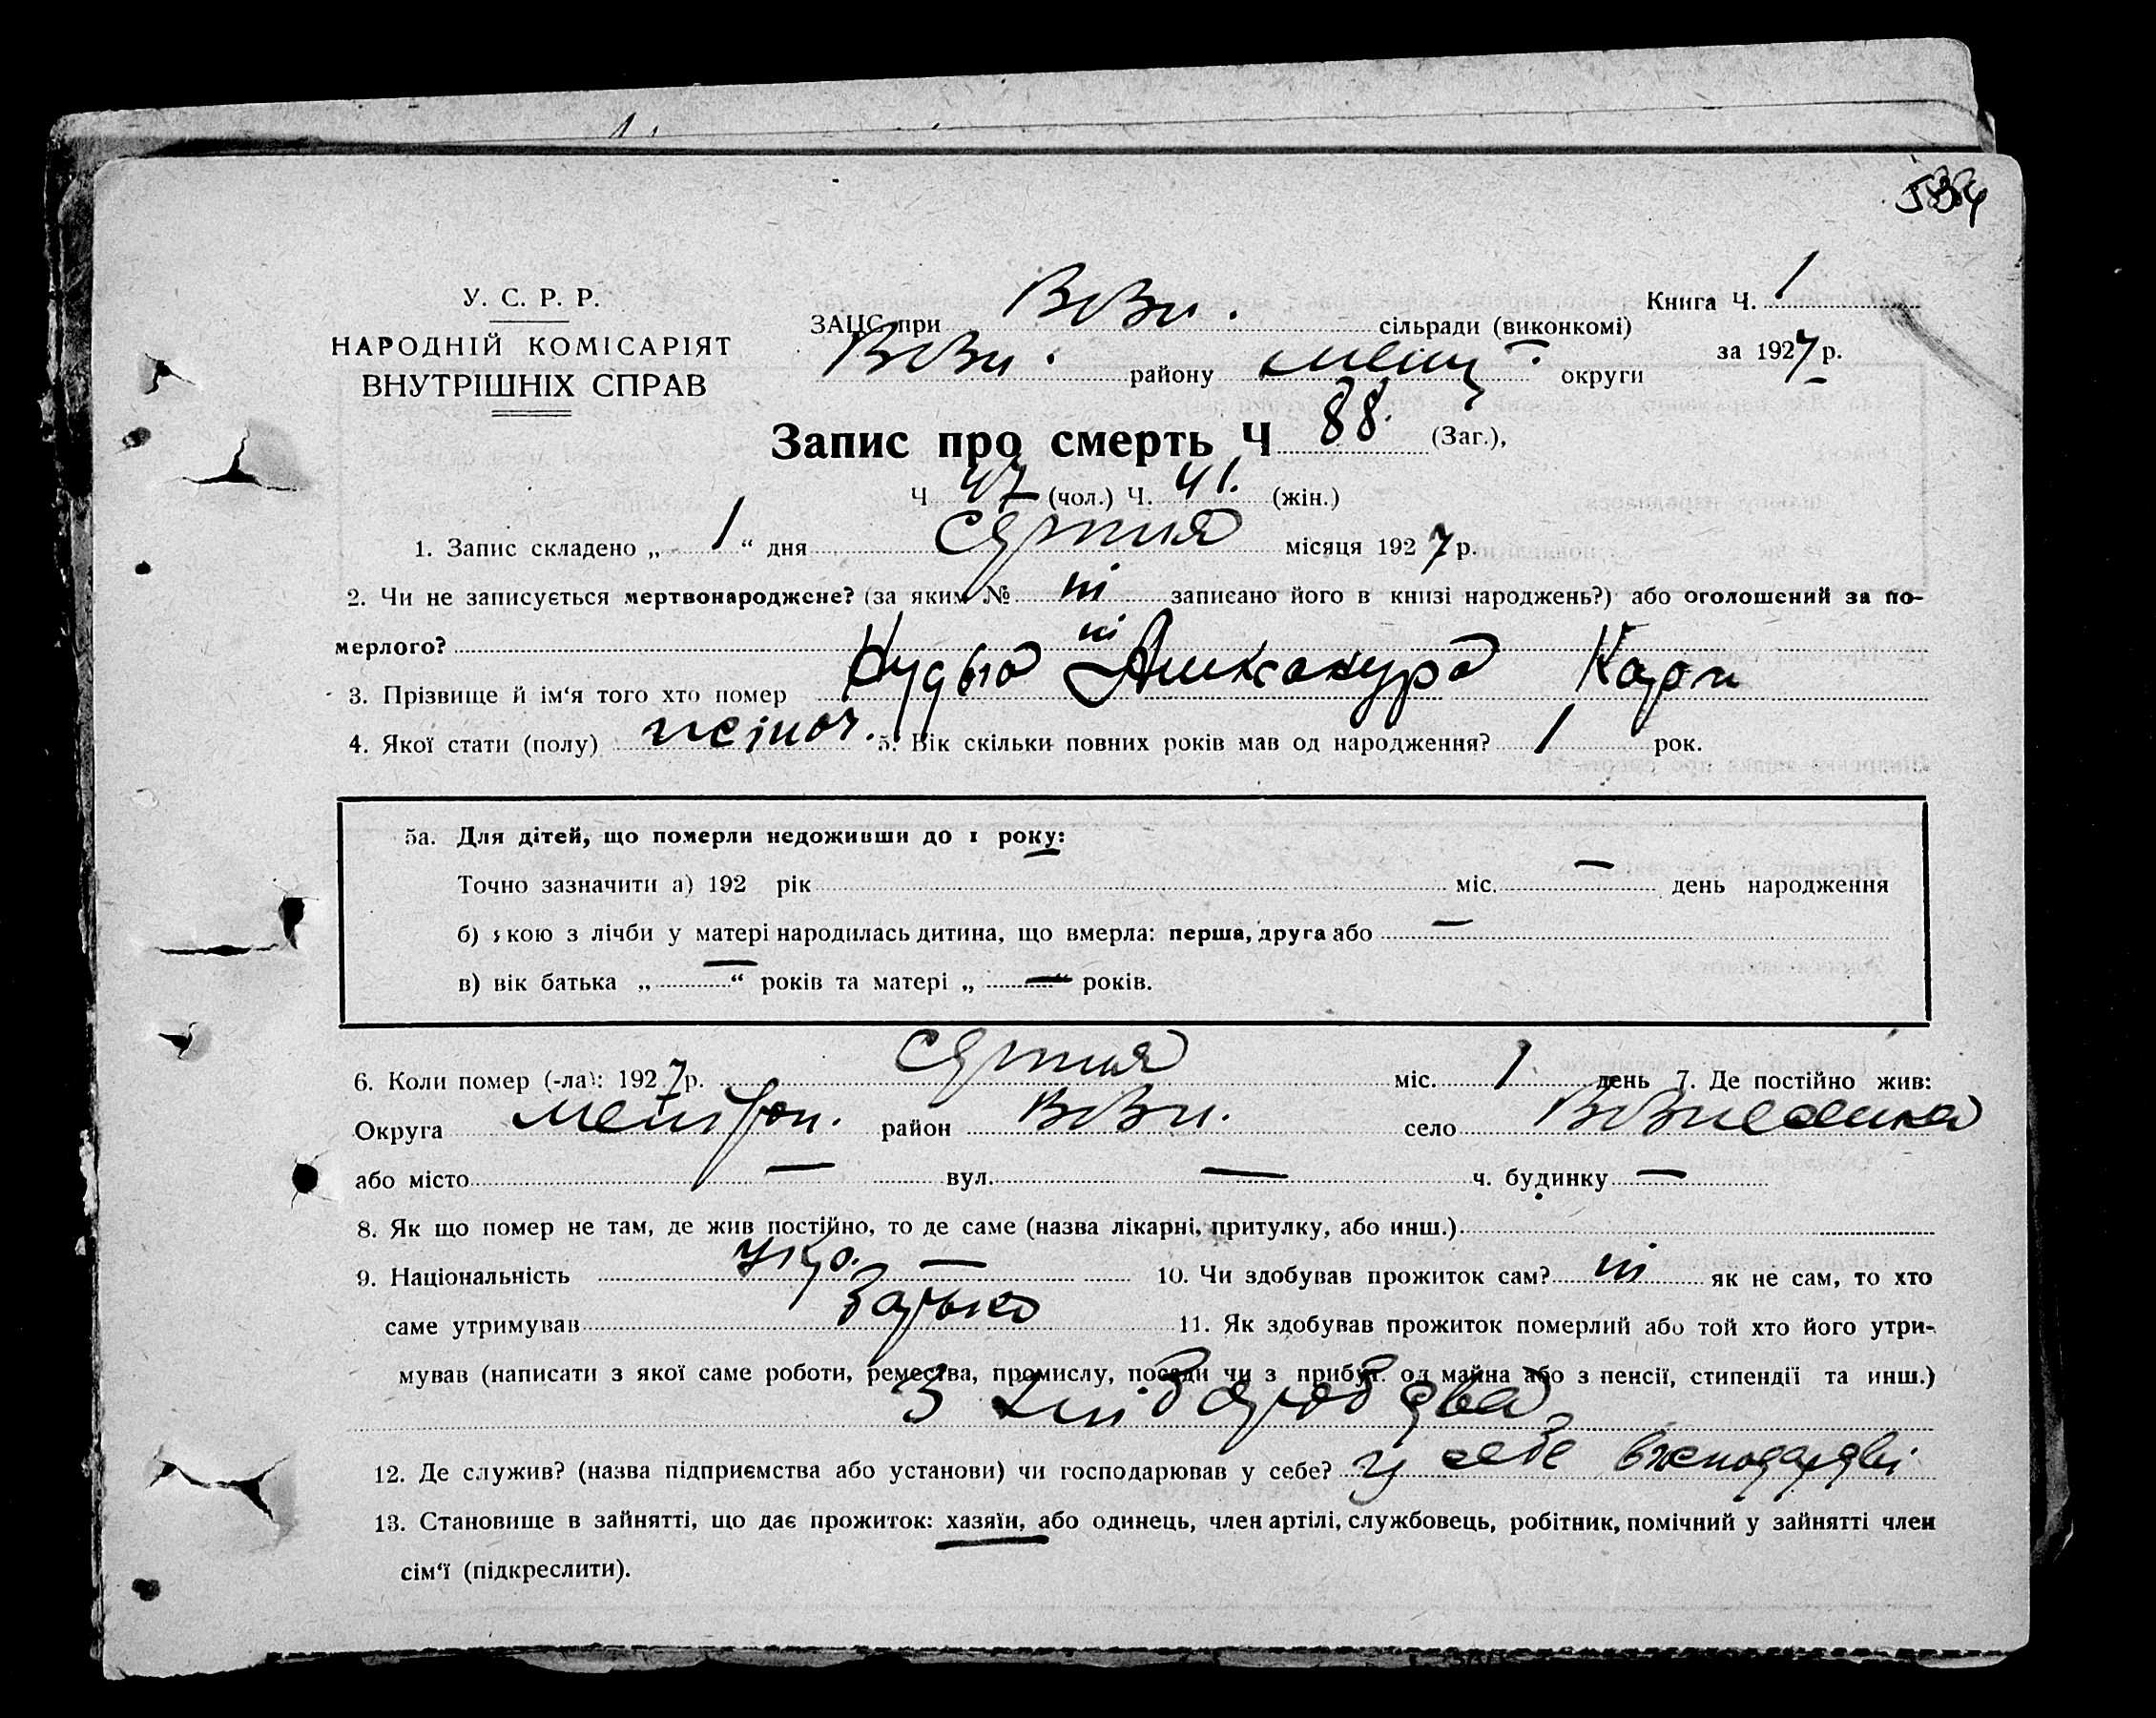 У. С. Р. Р.
НАРОДНІЙ КОМІСАРІЯТ
ВНУТРІШНІХ СПРАВ
ЗАЦС при Возн. сільради (виконкомі)
Книга Ч. 1
Возн. району Меліт. округи
за 1927 р.
Запис про смерть Ч 88. (Заг.),
Ч 47 (чол.) Ч. 41. (жін.)
1. Запис складено „ 1 “ дня Серпня місяця 1927 р.
2. Чи не записується мертвонароджене? (за яким № ні записано його в книзі народжень?) або оголошений за по-
мерлого? ні
3. Прізвище й ім‘я того хто помер
4. Якої стати (полу) жіноч. 5. Вік скільки повних років мав од народження? 1 рок.
5а. Для дітей, що померли недоживши до 1 року:
Точно зазначити а) 192 рік — міс. день народження
б) якою з лічби у матері народилась дитина, що вмерла: перша, друга або —
в) вік батька „ — “ років та матері „ — “ років.
6. Коли помер (-ла): 1927 р. Серпня міс. 1 день 7. Де постійно жив:
Округа Мелітоп. район Возн. село Вознесенка
або місто — вул. — ч. будинку —
8. Як що помер не там, де жив постійно, то де саме (назва лікарні, притулку, або инш.) —
9. Національність Укр. 10. Чи здобував прожиток сам? ні як не сам, то хто
саме утримував Батько 11. Як здобував прожиток померлий або той хто його утри-
мував (написати з якої саме роботи, ремества, промислу, посади чи з прибут. од майна або з пенсії, стипендії та инш.)
З хліборобства
12. Де служив? (назва підприємства або установи) чи господарював у себе? у себе
13. Становище в зайнятті, що дає прожиток: хазяїн, або одинець, член артілі, службовець, робітник, помічний у зайнятті член
сім‘ї (підкреслити).